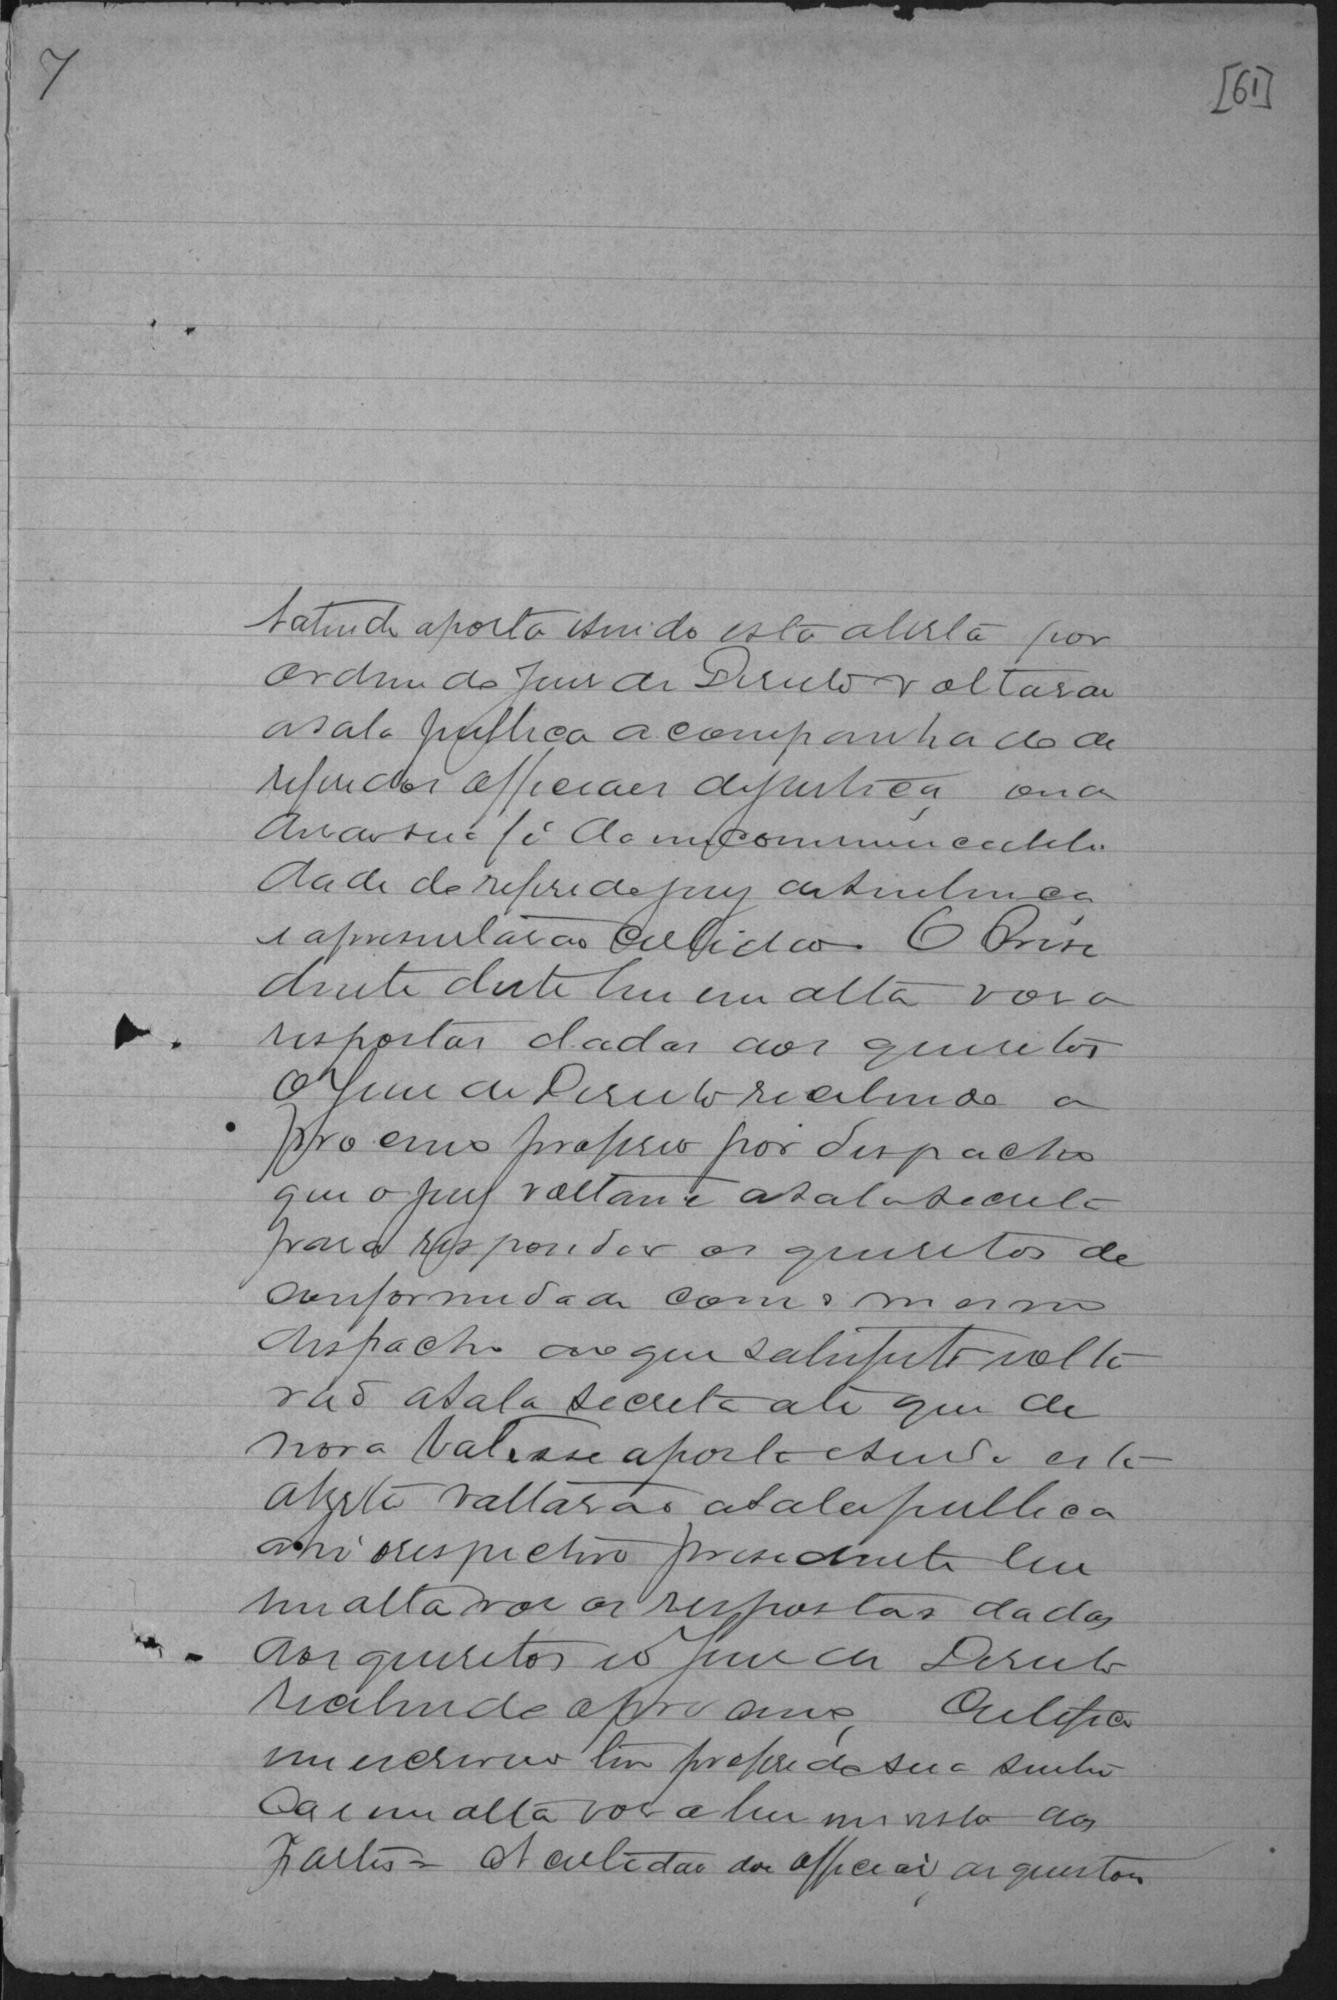 7
[61]
batendo aporta esendo esta aberta por
ordem do Juiz de Direito voltarão
asala publica acompanhado de
referidos officiaes dejustiça, onde
derão sua fé da incommunicabili
dade do referido jury desentença
e apresentarão certidão. O Presi
dente deste leu em alta voz a
respostas dadas aos quesitos
O Juiz de Direito recebendo o
processo proferio por despacho
que o jury voltasse asala secreta
para responder os quesitos de
conformidade com o mesmo
despacho ao que satisfeito volta
rão asala secreta até que de
nova batesse aporta esendo esta
aberta voltarão asala publica
ahi orespectivo presidente leu
em alta voz as respostas dadas
aos quesitos eo Juiz de Direito
recebendo oprocesso,
escrivão proferido sua senten
ça e em alta voz a leu
partes = A certidão dos officiaes, os quesitos